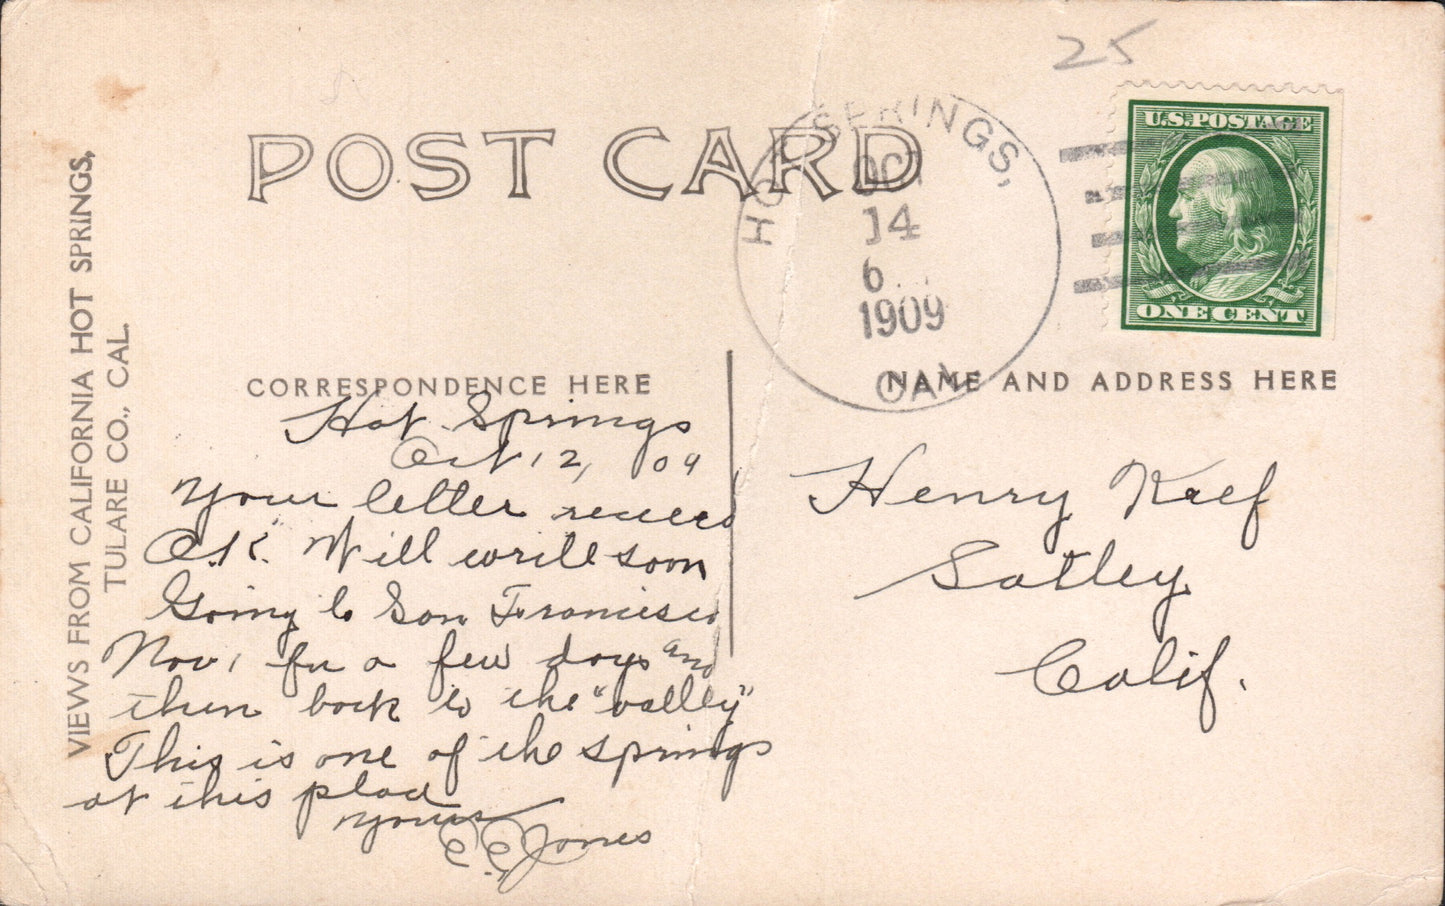 25
POST CARD
U.S.POSTAGE
ONE CENT
HOT SPRINGS,
OCT
14
6
1909
CAL
VIEWS FROM CALIFORNIA HOT SPRINGS,
TULARE CO., CAL.
CORRESPONDENCE HERE
NAME AND ADDRESS HERE
Hot Springs
Oct 12, 09
Your letter received
O.K. Will write soon
Going to San Francisco
Nov 1 for a few days and
then back to the "valley"
This is one of the springs
at this place
Yours
E.E. Jones
Henry
Satley
Calif.